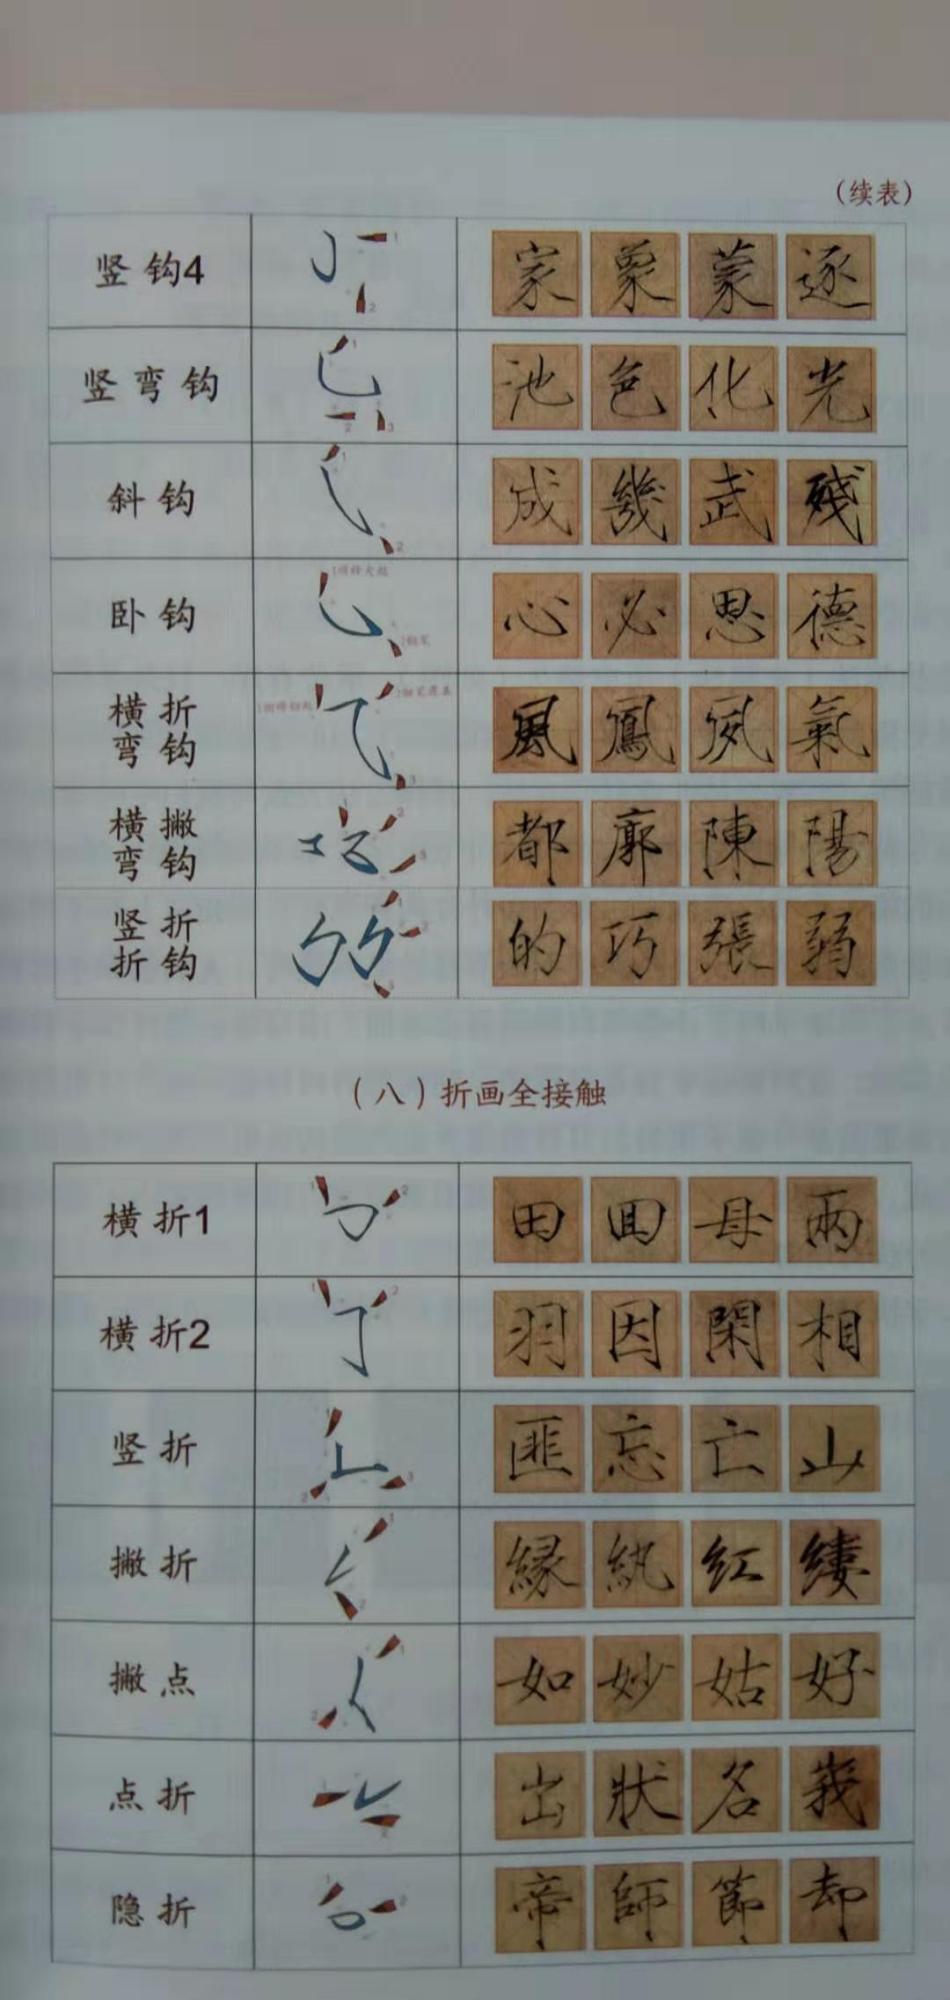 （续表）
竖钩4 家 蒙 逐
竖弯钩 池 色 化 光
斜钩 成 幾 武 殘
卧钩 心 必 思 德
横折
弯钩 風 鳳 夙 氣
横撇
弯钩 都 廓 陳 陽
竖折
折钩 的 巧 張 弱
（八）折画全接触
横折1 田 母 兩
横折2 羽 因 閑 相
竖折 匪 忘 亡 山
撇折 緣 紈 红 縷
撇点 如 妙 姑 好
点折 出 狀 名 我
隐折 帝 師 節 却